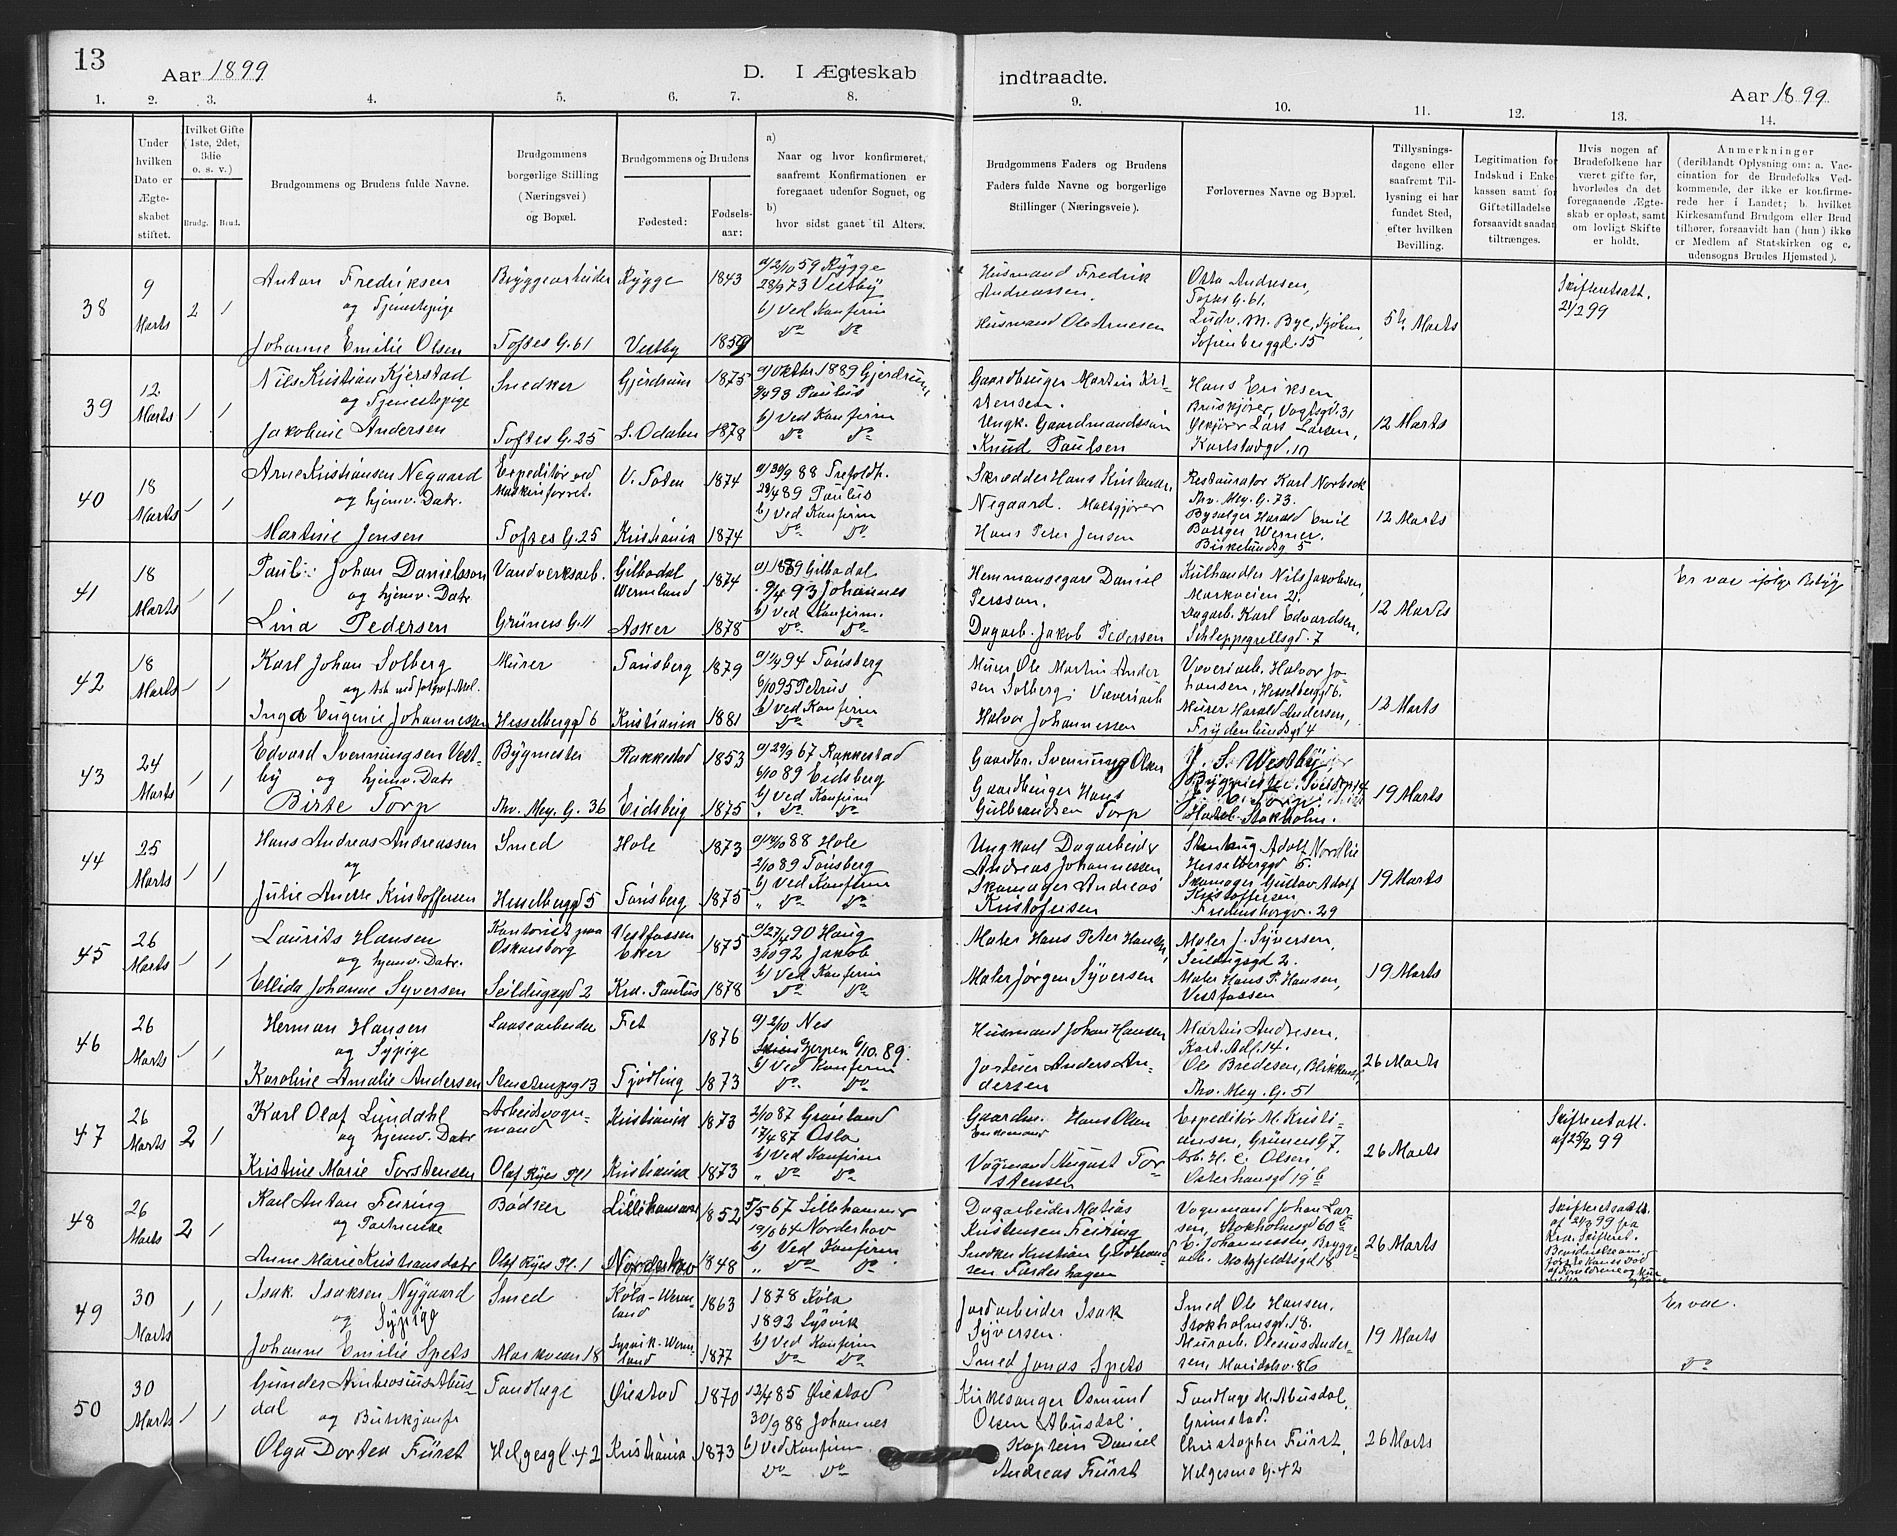 13
Aar 1899
D. I Ægteskab
indtraadte.
Aar 1899
1.
2.
3.
4.
5.
6.
7.
8.
9.
10.
11.
12.
13.
14.
Under
hvilken
Dato er
Ægte-
skabet
stiftet.
Ivilket Gifte
( 1ste, 2det,
3die
o. s. v.)
Brudg.
Brud.
Brudgommens og Brudens fulde Navne.
Brudgommens
borgerlige Stilling
(Næringsvei)
og Bopæl.
Brudgommens og Brudens
Fødested:
Fødsels-
aar:
a)
Naar og hvor konfirmeret,
saafremt Konfirmationen er
foregaaet udenfor Sognet, og
b)
hvor sidst gaaet til Alters.
Brudgommens Faders og Brudens
Faders fulde Navne og borgerlige
Stillinger (Næringsveie).
Forlovernes Navne og Bopæl.
Tillysnings-
dagene eller
saafremt Til-
lysning ei har
fundet Sted,
efter hvilken
Bevilling.
Legitimation for
Indskud i Enke-
kassen samt for
Giftetilladelse
forsaavidt saadan
tiltrænges.
Hvis nogen af
Brudefolkene har
været gifte før,
hvorledes da det
foregaaende Ægte-
skab er opløst, samt
om lovligt Skifte
er holdt.
Anmerkninger
(deriblandt Oplysning om: a. Vac-
cination for de Brudefolks Ved-
kommende, der ikke er konfirme-
rede her i Landet; b. hvilket
Kirkesamfund Brudgom eller Brud
tilhører, forsaavidt han (hun) ikke
er Medlem af Statskirken og c.
udensogns Brudes Hjemsted).
38
9
Marts
2
1
Anton Fredriksen
og Tjenestepige
Johanne Emilie Olsen
Bryggearbeider
Toftes G. 61
Rygge
Vestby
1843
1859
a) 2/10 59 Rygge
28/9 73 Vestby
b) Ved Konfirm
Do Do
Husmand Fredrik
Andreassen.
Husmand Ole Arnesen
Otto Andresen,
Toftes G. 61.
Ludv. M. Bye, Kjøbm,
Sofienberggd. 15
5te Marts
Skifteretsatt.
21/2 99
39
12
Marts
1
1
Nils Kristian Kjerstad
og Tjenestepige
Jakobine Andersen
Snedker
Toftes G. 25
Gjerdrum
S. Odalen
1875
1878
a) Oktbr 1889 Gjerdrum,
9/4 93 Paulus
b) Ved Konfirm
Do Do
Gaardbruger Martin Kri-
stensen.
Ungk. Gaardmandssøn
Knud Paulsen
Hans Eriksen
Bruskjører, Vogtsgd. 31
Ølkjører Lars Larsen,
Karlstadgd. 10
12 Marts
40
18
Marts
1
1
Arne Kristiansen Negaard
og hjemv. Datr.
Martine Jensen
Expeditør ved
Maskinforret.
Toftes G. 25
V. Toten
Kristiania
1874
1874
a) 30/9 88 Trefoldh.
28/4 89 Paulus
b) Ved Konfirm
Do Do
Skrædder Hans Kristian
Negaard. Maltgjører
Hans Peter Jensen
Restauratør Karl Norbeck
Thv. Mey. G. 73.
Bysælger Harald Emil
Bottger Werner.
Birkelundsg 5
12 Marts
41
18
Marts
1
1
Paul Johan Danielsson
og hjemv. Datr
Lina Pedersen
Vandverksarb.
Grüners G. 11
Gilbodal
Wermland
Asker
1874
1878
a) 1889 Gilbodal
9/4 93 Johannes
b) Ved Konfirm.
Do Do
Hemmansegare Daniel
Persson.
Dagarb. Jakob Pedersen
Kulhandler Nils Jakobsen,
Markveien 21.
Dagarb. Karl Edvardsen,
Schleppegrellsgd. 7
12 Marts
Er vac ifølge Betyg
42
18
Marts
1
1
Karl Johan Solberg
og Arb ved fotograf Atel.
Inga Eugenie Johannessen
Murer
Hesselberggd 6
Tønsberg
Kristiania
1879
1881
a) 1/4 94 Tønsberg
6/10 95 Petrus
b) Ved Konfirm
Do Do
Murer Ole Martin Ander
sen Solberg. Væveriarb
Halvor Johannessen
Væveriarb. Halvor Jo-
hansen, Hesselberggd 6.
Murer Harald Andersen,
Frydenlundsgd 4
12 Marts
43
24
Marts
1
1
Edvard Svenningsen Vest-
by og hjemv. Datr
Birte Torp
Bygmester
Thv. Mey. G. 36
Rakkestad
Eidsberg
1853
1875
a) 29/9 67 Rakkestad
6/10 89 Eidsberg
b) Ved Konfirm
" Do Do
Gaardbr. Svennung Olsen
Gaardbruger Hans
Gulbrandsen Torp
J. S. Westby
Bygmester
Hotel Stokholm.
19 Marts
44
25
Marts
1
1
Hans Andreas Andreassen
og
Julie Anette Kristoffersen
Smed
Hesselberggd 5
Hole
Tønsberg
1873
1875
a) 14/10 88 Hole
2/10 89 Tønsberg
b) Ved Konfirm
" Do Do
Ungkarl Dagarbeider
Andreas Johannessen
Skomager Andreas
Kristofersen
Adolf Nordlie
Hesselberggd 5.
Skomager Gustav Adolf
Kristoffersen
Fredensborgv. 29
19 Marts
45
26
Marts
1
1
Laurits Hansen
og hjemv. Datr.
Ellida Johanne Syversen
Kontorist paa
Oskarsborg
Seildugsgd 2
Vestfossen
Eker
Kra. Paulus
1875
1878
a) 27/4 90 Haug
3/10 92 Jakob
b) Ved Konfirm
Do Do
Maler Hans Peter Hansen
Maler Jørgen Syversen
Maler J. Syversen,
Seildugsgd 2.
Maler Hans P. Hansen,
Vestfossen
19 Marts
46
26
Marts
1
1
Herman Hansen
og Sypige
Karoline Amalie Andersen
Laasearbeider
Steenstrupsg 13
Fet
Tjødling
1876
1873
a) 2/10 Nes
Gjerpen 6/10. 89.
b) Ved Konfirm
Do Do
Husmand Johan Hansen
Jordeier Anders An-
dersen
Martin Andresen,
Kort. Adl. 14.
Ole Bredesen, Blikkensl,
Thv. Mey. G. 51
26 Marts
47
26
Marts
2
1
Karl Olaf Lunddahl
og hjemv. Datr
Kristine Marie Torstensen
Arbeidsvogn-
mand
Olaf Ryes Pl 1
Kristiania
Kristiania
1873
1873
2/10 87 Grønland
17/4 87 Oslo
b) Ved Konfirm
" Do Do
Hans Olsen
Vognmand August Tor-
stensen
Expeditør M. Kristi-
ansen, Grüners G 7.
Arb. H. C. Olsen
Osterhausgd 19 b
26 Marts
Skifteretsatt.
af 25/2 99
48
26
Marts
2
1
Karl Anton Feiring
og
Anne Marie Kristiansdatr
Bødker
Olaf Ryes Pl. 1
Lillehammer
Norderhov
1852
1848
5/5 67 Lillehammer
19/6 64 Norderhov
b) Ved Konfirm
" Do Do
Dagarbeider Matias
Kristensen Feiring
Snedker Kristian Gudbrand
sen Farderhagen
Vognmand Johan Lar
sen, Stokholmsgd 60 b
E. Johannessen, Brygge-
arb. Motzfeldtsgd 18
26 Marts
Skifteretsatt.
af 21/3 99 fra
Kra. Skifteret.
49
30
Marts
1
1
Isak Isaksen Nygaard
og Sypige
Johanne Emilie Spets
Smed
Markveien 18
Köla-Werm-
land
Lysvik-Werm-
land
1863
1877
1878 Köla
1892 Lysvik
b) Ved Konfirm
Do Do
Jordarbeider Isak
Syversen.
Smed Jonas Spets
Smed Ole Hansen,
Stokholmsgd. 18.
Murarb. Olenius Ander-
sen Maridalsv. 86
19 Marts
Er vac.
Do
50
30
Marts
1
1
Gunder Ambrosius Abus-
dal
og
Olga Dortea Fürst
Tandlæge
Helgesgt. 42
Øiestad
Kristiania
1870
1873
12/4 85 Øiestad
30/9 88 Johannes
b) Ved Konfirm.
Do Do
Kirkesanger Osmund
Olsen Abusdal.
Kaptein Daniel
Andreas Fürst
Tandlæge M. Abusdal,
Grimstad.
Christopher Fürst,
Helgesens G. 42
26 Marts